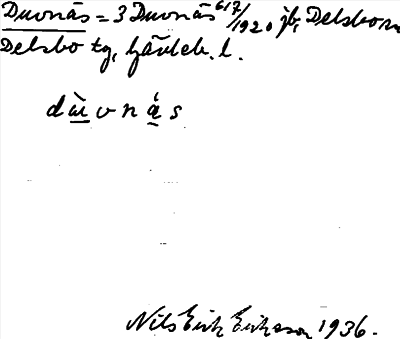 Duvnäs = 3 Duvnäs 6/7 1920, jb, Delsbo
Delsbo tg, Gävleb. l.
dùvnás
Nils Erik Eriksson 1936.